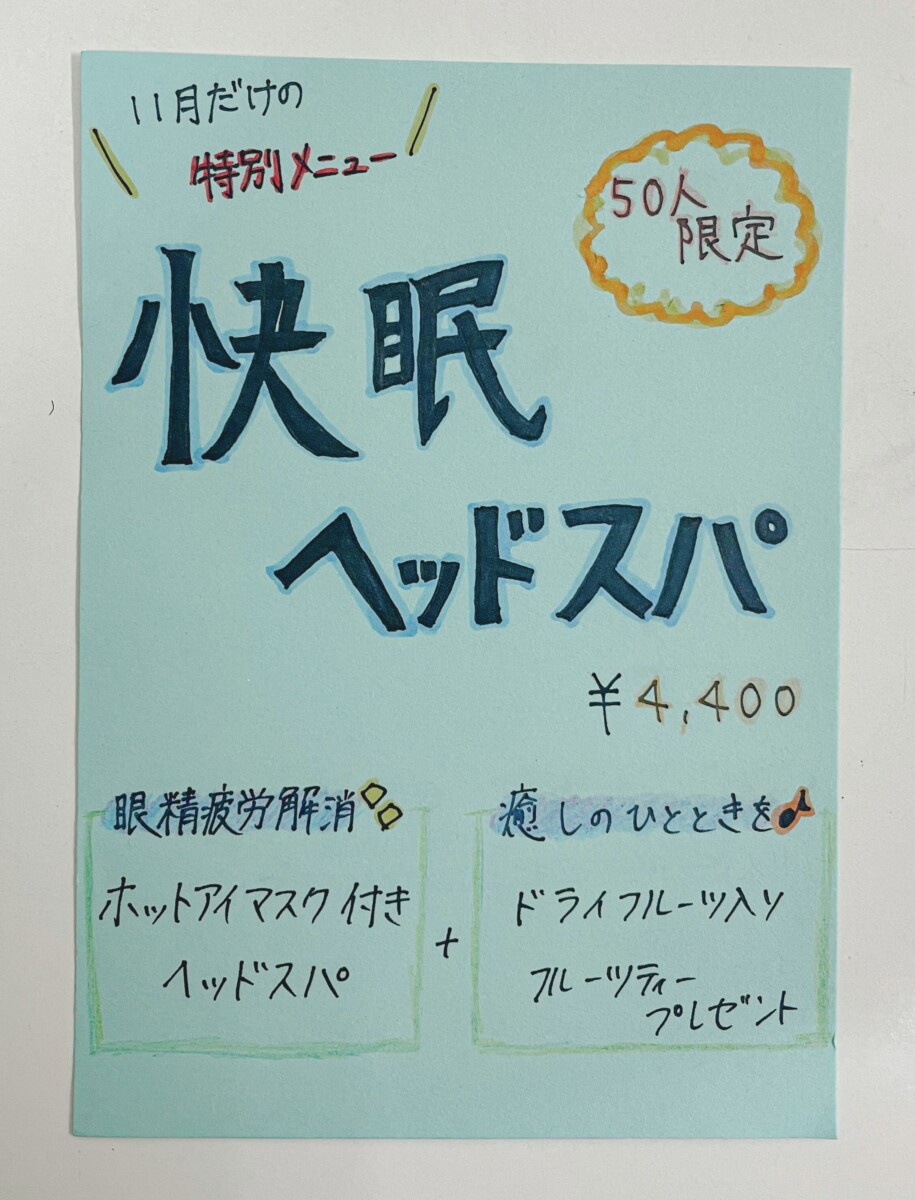 11月だけの
特別メニュー
50人
限定
快眠
ヘッドスパ
¥4,400
眼精疲労解消
ホットアイマスク付き
ヘッドスパ
+
癒しのひとときを♪
ドライフルーツ入り
フルーツティー
プレゼント